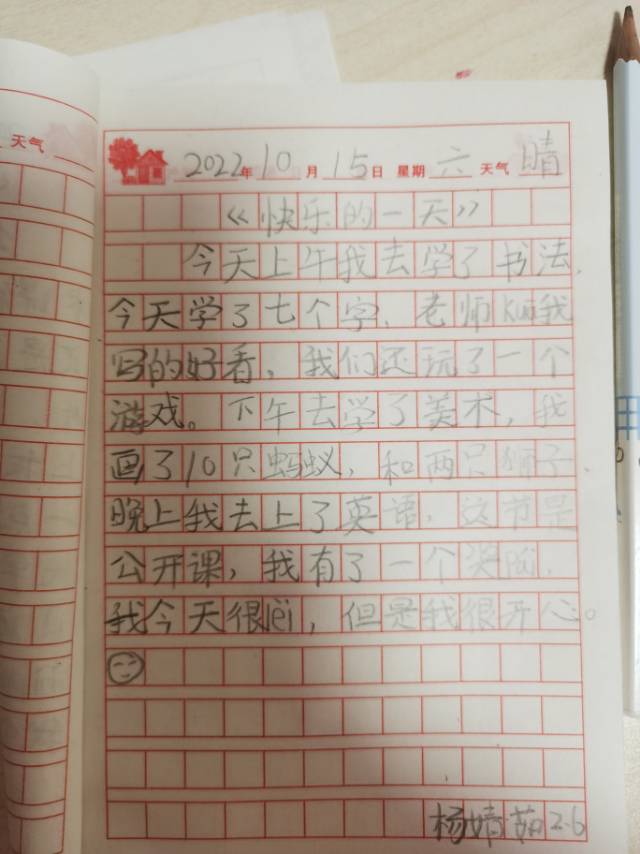 天气
2022年10月15日 星期六 天气晴
《快乐的一天》
今天上午我去学了书法,
今天学了七个字,老师kuā我
写的好看,我们还玩了一个
游戏。下午去学了美术,我
画了10只蚂蚁,和两只狮子
晚上我去上了英语,这节是
公开课,我有了一个奖
我今天很lèi,但是我很开心。
杨婧茹2.6